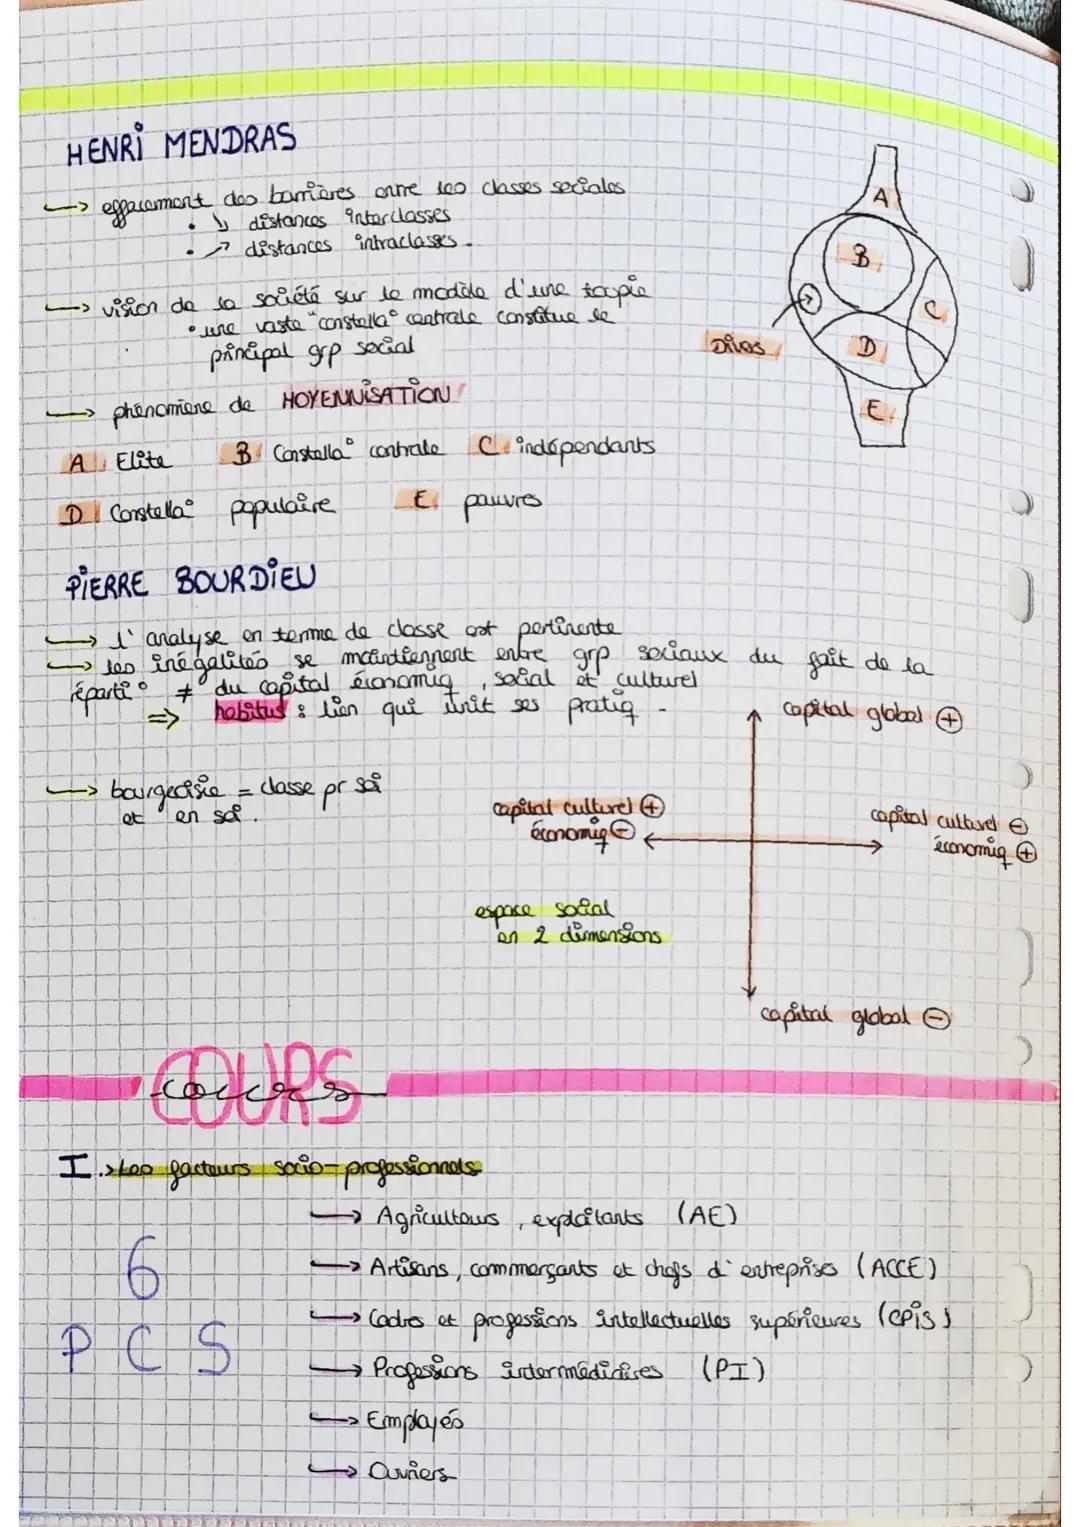 HENRI MENDRAS
→ effacement des barrières entre les classes sociales
• ↘ distances interclasses
• ↗ distances intraclasses.
→ vision de la société sur le modèle d'une toupie
• une vaste "constella° centrale constitue le
principal grp social
→ phénomène de MOYENNISATION
A Elite B Constella° centrale C indépendants
D Constella° populaire E pauvres
A
B
C
Divers
D
E
PIERRE BOURDIEU
→ l'analyse en terme de classe est pertinente
→ les inégalités se maintiennent entre grp sociaux du fait de la
réparti° ≠ du capital économiq, social et culturel
⇒ habitus : lien qui unit ses pratiq.
→ bourgeoisie = classe pr soi
et en soi.
capital global ⊕
capital culturel ⊕
économiq ⊖
capital culturel ⊖
économiq ⊕
espace social
en 2 dimensions
capital global ⊖
COURS
cours
I.> Les facteurs socio-professionnels
6
PCS
→ Agriculteurs, exploitants (AE)
→ Artisans, commerçants et chefs d'entreprises (ACCE)
→ Cadres et professions intellectuelles supérieures (CPIS)
→ Professions intermédiaires (PI)
→ Employés
→ Ouvriers